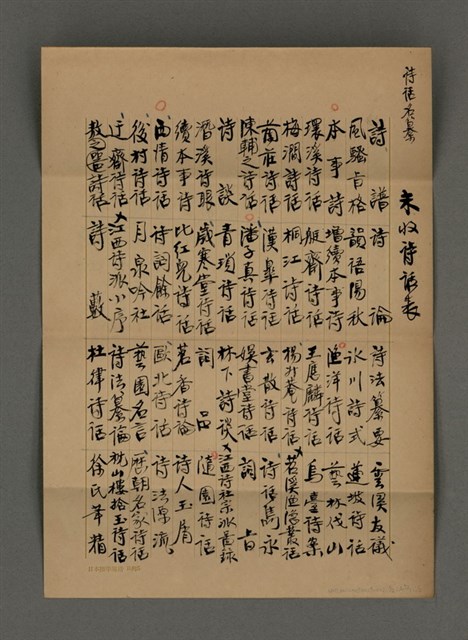 詩話名彙
未收詩話表
詩譜 詩論 詩法纂要 雲溪友議
風騷旨格 韻語陽秋 冰川詩式 蓮坡詩話
本事詩 增續本事詩 漁洋詩話 藝林伐山
環溪詩話 艇齋詩話 王應麟詩話 烏臺詩案
梅澗詩話 桐江詩話 楊升菴詩話 苕溪漁隱叢話
荊莊詩話 漢皐詩話 玄散詩話 詩話馬永
陳輔之詩話 潘子真詩話 娛書堂詩話 詞旨
詩談 青瑣詩話 林下詩談 江西詩社宗派圖錄
潛溪詩眼 歲寒堂詩話 詞品 隨園詩話
續本事詩 比紅兒詩話 茗香詩論 詩人玉屑
西清詩話 詩詞餘話 甌北詩話 詩法源流
後村詩話 月泉吟社 藝圃名言 歷朝名家詩話
迂齋詩話 江西詩派小序 詩法纂論 枕山樓拾玉詩話
敖器之詩話 詩藪 杜律詩話 徐氏筆精